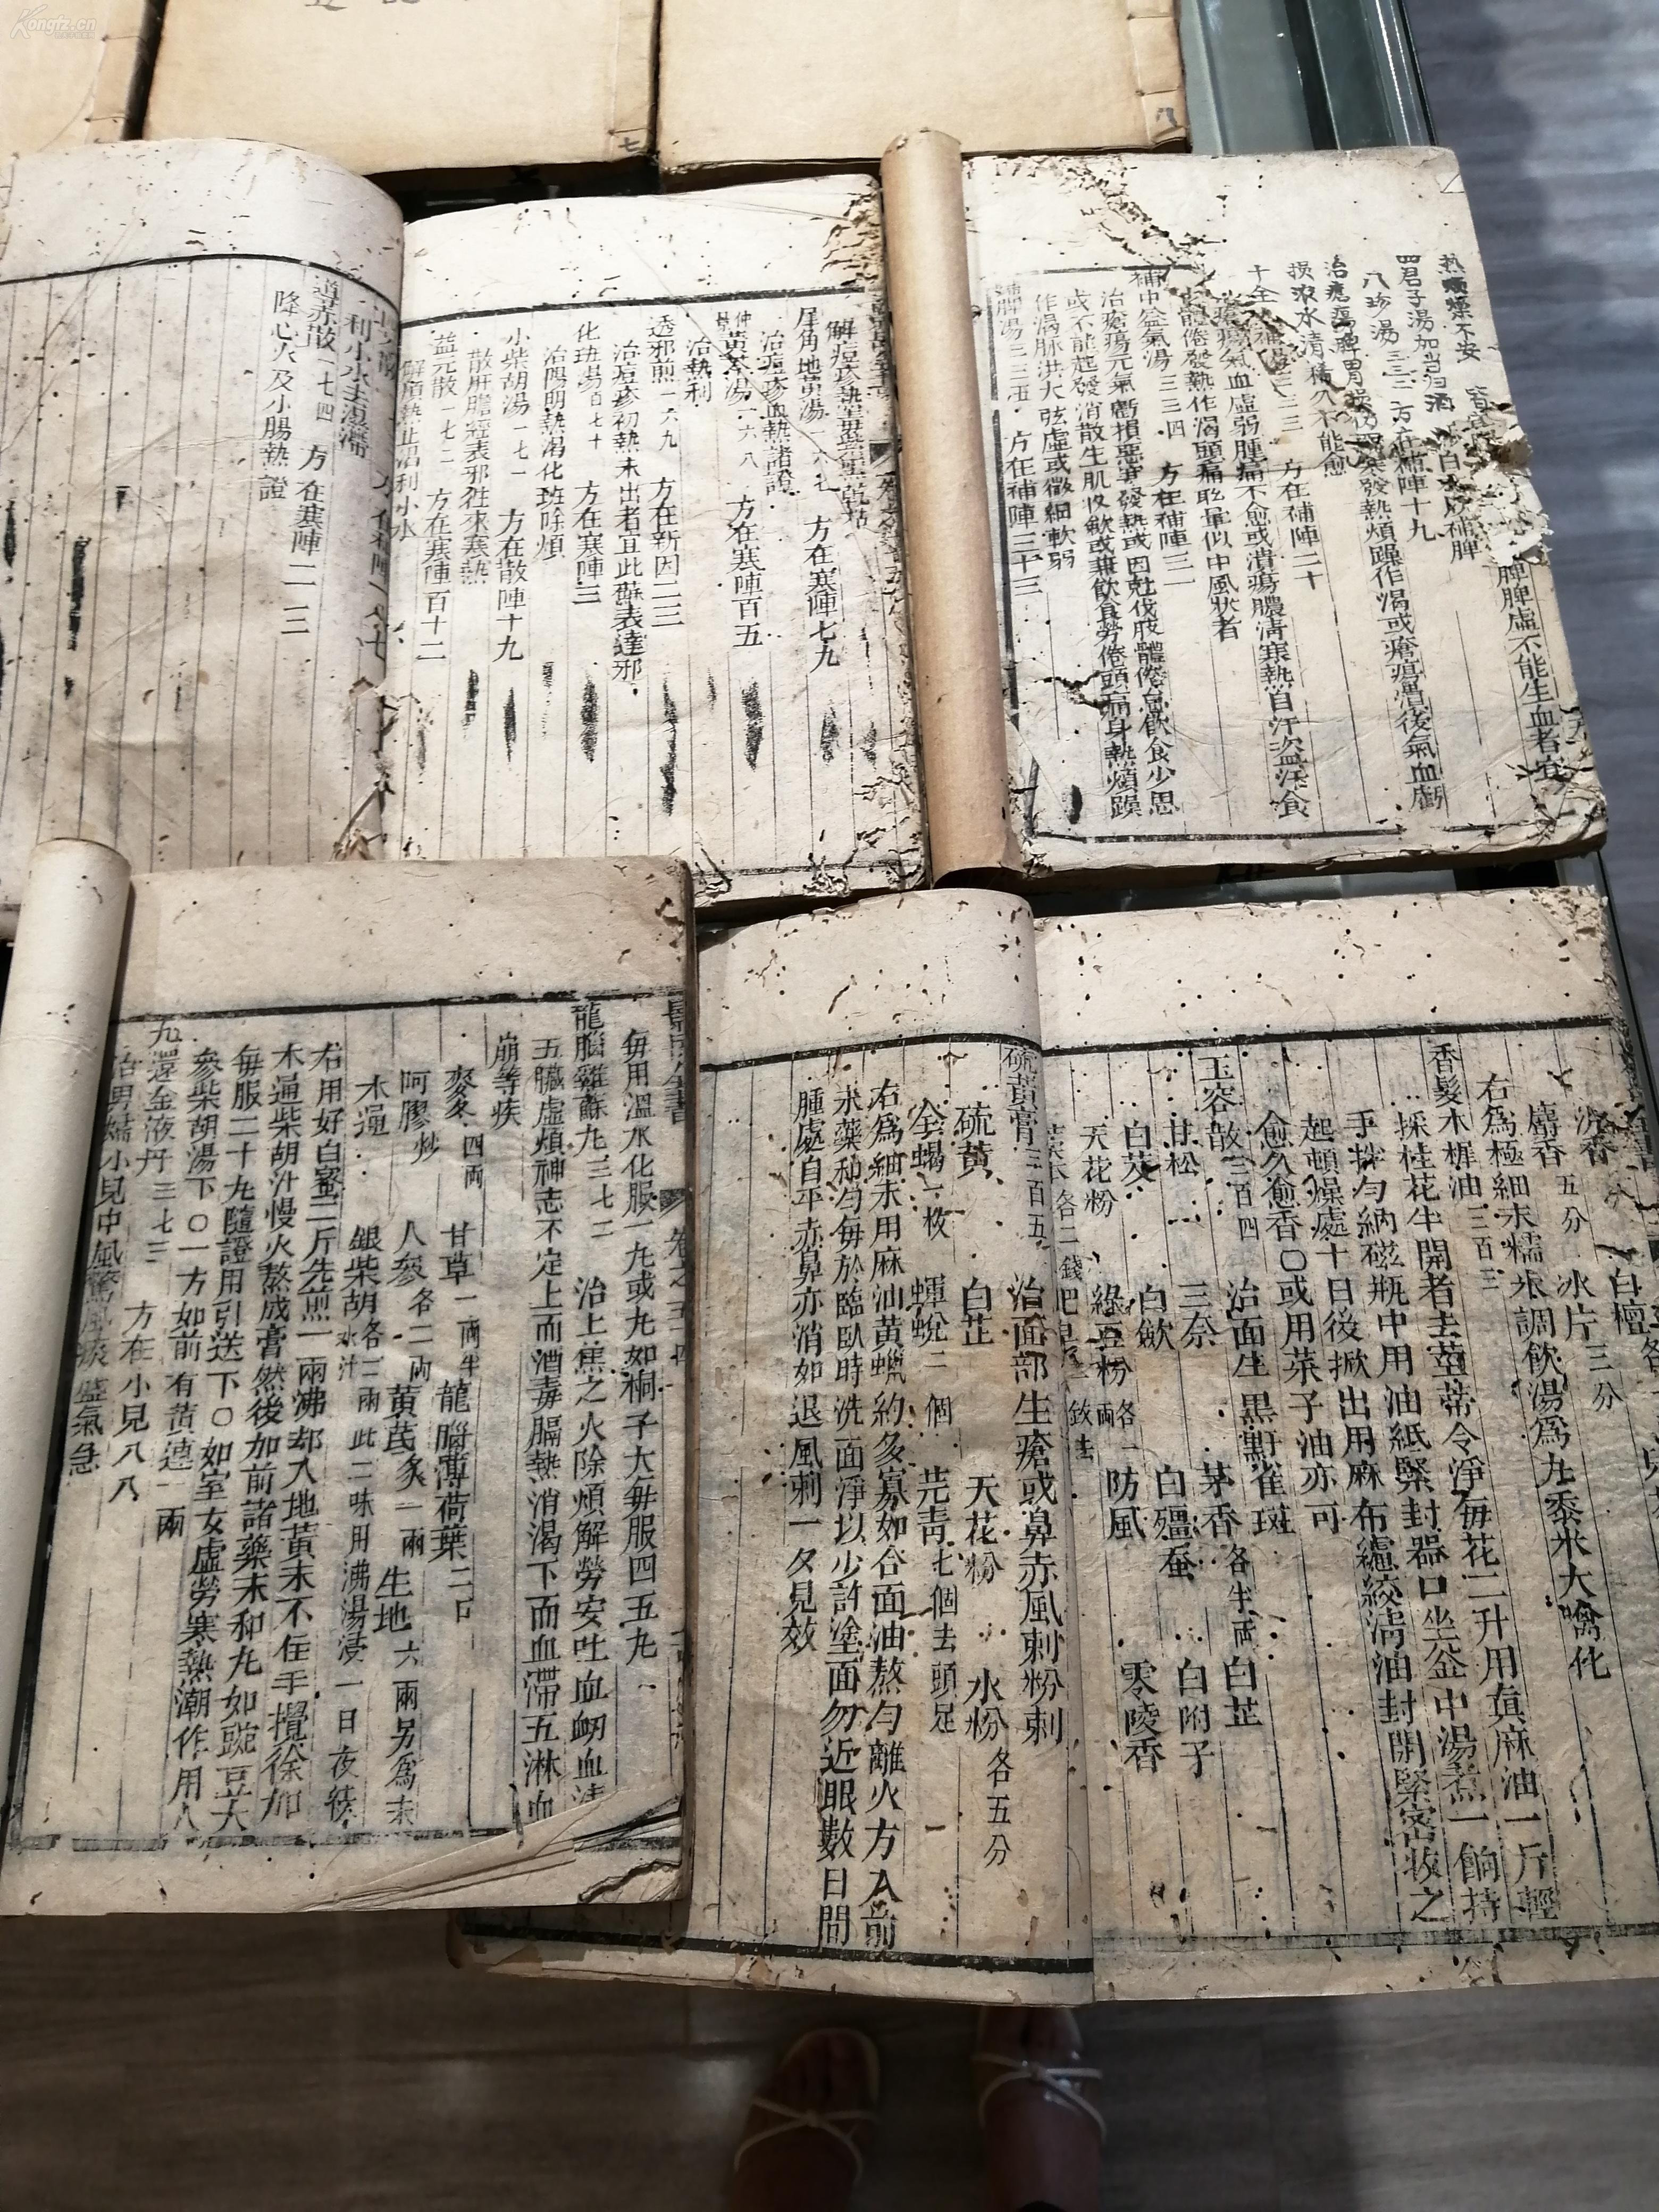 Kongfz.cn
七
八
热煩燥不安
四君子湯加當归酒
八珍湯三三二方在補陣十九
治瘡瘍脾胃損傷惡寒發熱煩躁作渴或瘡瘍潰後氣血虧
損濃水清稀久不能愈
方在補陣二十
瘡瘍氣血虛弱腫痛不愈或潰瘍膿清寒熱自汗盗汗食
體倦發熱作渴頭痛眩暈似中風状者
補中益氣湯三三四 方在補陣三一
治瘡瘍元氣虧損惡寒發熱或因尅伐肢體倦怠飲食少思
或不能起發消散生肌收斂或兼飲食勞倦頭痛身熱煩躁
作渴脉洪大弦虛或微細軟弱
歸脾湯三三五 方在補陣三十三
解痘疹熱毒
犀角地黃湯一六七 方在寒陣七九
治痘疹血熱諸證
仲景黃芩湯一六八 方在寒陣百五
治熱利
透邪煎一六九 方在新因二三
治痘疹初熱未出者宜此藥表達邪
化斑湯百七十 方在寒陣三
治陽明熱渴化斑除煩
小柴胡湯一七一 方在散陣十九
散肝膽經表邪徃來寒熱
益元散一七二 方在寒陣百十二
解煩熱止渴利小水
利小水
導赤散一七四 方在寒陣一二三
降心火及小腸熱證
沉香
白檀
麝香五分 冰片三分
右爲極細末糯米調飲湯爲丸黍米大噙化
香髮木樨油三百三
採桂花半開者去莖蒂令淨每花二升用真麻油一斤輕
手拌勻納磁瓶中用油紙緊封器口坐釜中湯煮一餉持
起頓燥處十日後掀出用麻布纏絞清油封閉緊密收之
愈久愈香○或用菜子油亦可
玉容散三百四 治面生黑䵟雀斑
甘松 三奈 茅香各半兩 白芷
白芨 白歛 白殭蚕 白附子
天花粉 綠豆粉各一兩 防風 零陵香
藁本各二錢 肥皂
硫黃膏三百五 治面部生瘡或鼻赤風刺粉刺
硫黃 白芷 天花粉 水粉各五分
全蝎一枚 蟬蛻二個 芫青七個去頭足
右爲細末用麻油黃蠟約多寡如合面油熬勻離火方入前
末藥和勻每於臨臥時洗面淨以少許塗面勿近眼數日間
腫處自平赤鼻亦消如退風刺一夕見效
景岳全書 卷之五十四
每用溫水化服一丸或丸如桐子大每服四五丸
龍腦雞蘇丸三七二 治上焦之火除煩解勞安吐血衄血清
五臟虛煩神志不定上而酒毒膈熱消渴下而血滯五淋血
崩等疾
麥冬四兩 甘草一兩半 龍腦薄荷葉二
阿膠炒 人參各二兩 黃芪炙一兩 生地六兩另爲末
木通 銀柴胡各二兩此二味用沸湯浸一日夜絞水汁
右用好白蜜二斤先煎一兩沸却入地黃末不住手攪徐加
木通柴胡汁慢火熬成膏然後加前諸藥末和丸如豌豆大
每服二十丸隨證用引送下○如室女虛勞寒熱潮作用人
參柴胡湯下○一方如前有黃連一兩
九還金液丹三七三 方在小兒八八
治男婦小兒中風驚風痰盛氣急